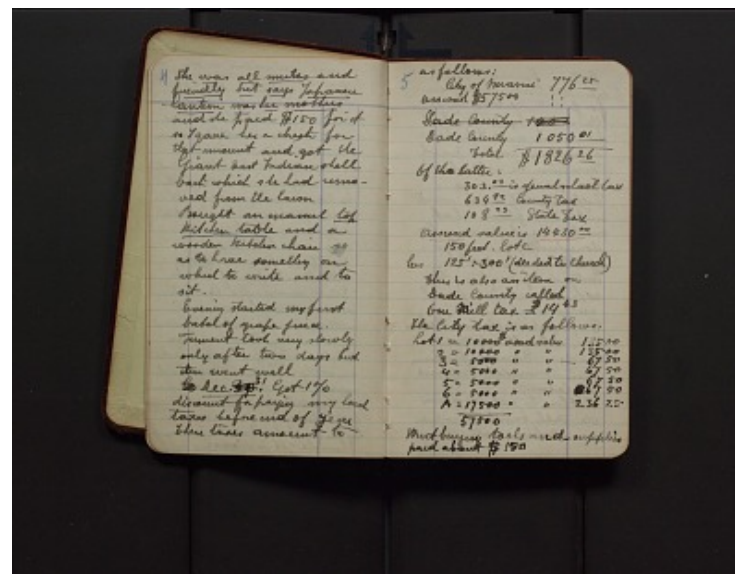 4 She was all smiles and
friendly but says Japanese
lantern was her mothers
and she paid $150 for it
so I gave her a check for
that amount and got the
Giant East Indian shell
back which she had remo-
ved from the lawn
Bought an enamel top
Kitchen table and a
wooden Kitchen chair so
as to have something on
which to write and to
sit.
Evening started my first
batch of grape juice.
Ferment took very slowly
only after two days but
then went well
to Dec. 31 Got 1%
discount for paying my local
taxes before end of year
These taxes amount to
5 as follows:
City of Miami 776 25
assessed $57500
Dade County
Dade County 1050 01
Total $1826 26
Of the latter:
is special school tax
County Tax
State Tax
assessed value is 14430 00
150 feet. Lot C
less 125' x 300' (deeded to Church)
There is also an item on
Dade County called
One Mill tax $14 43
The City tax is as follows:
Lot 1 = 10000 assessed value 135 00
2 = 10000 " " 135 00
3 = 5000 " " 67 50
4 = 5000 " " 67 50
5 = 5000 " " 67 50
6 = 5000 " " 67 50
A = 17500 " " 236 25
57500
buying tools and supplies
paid about $150